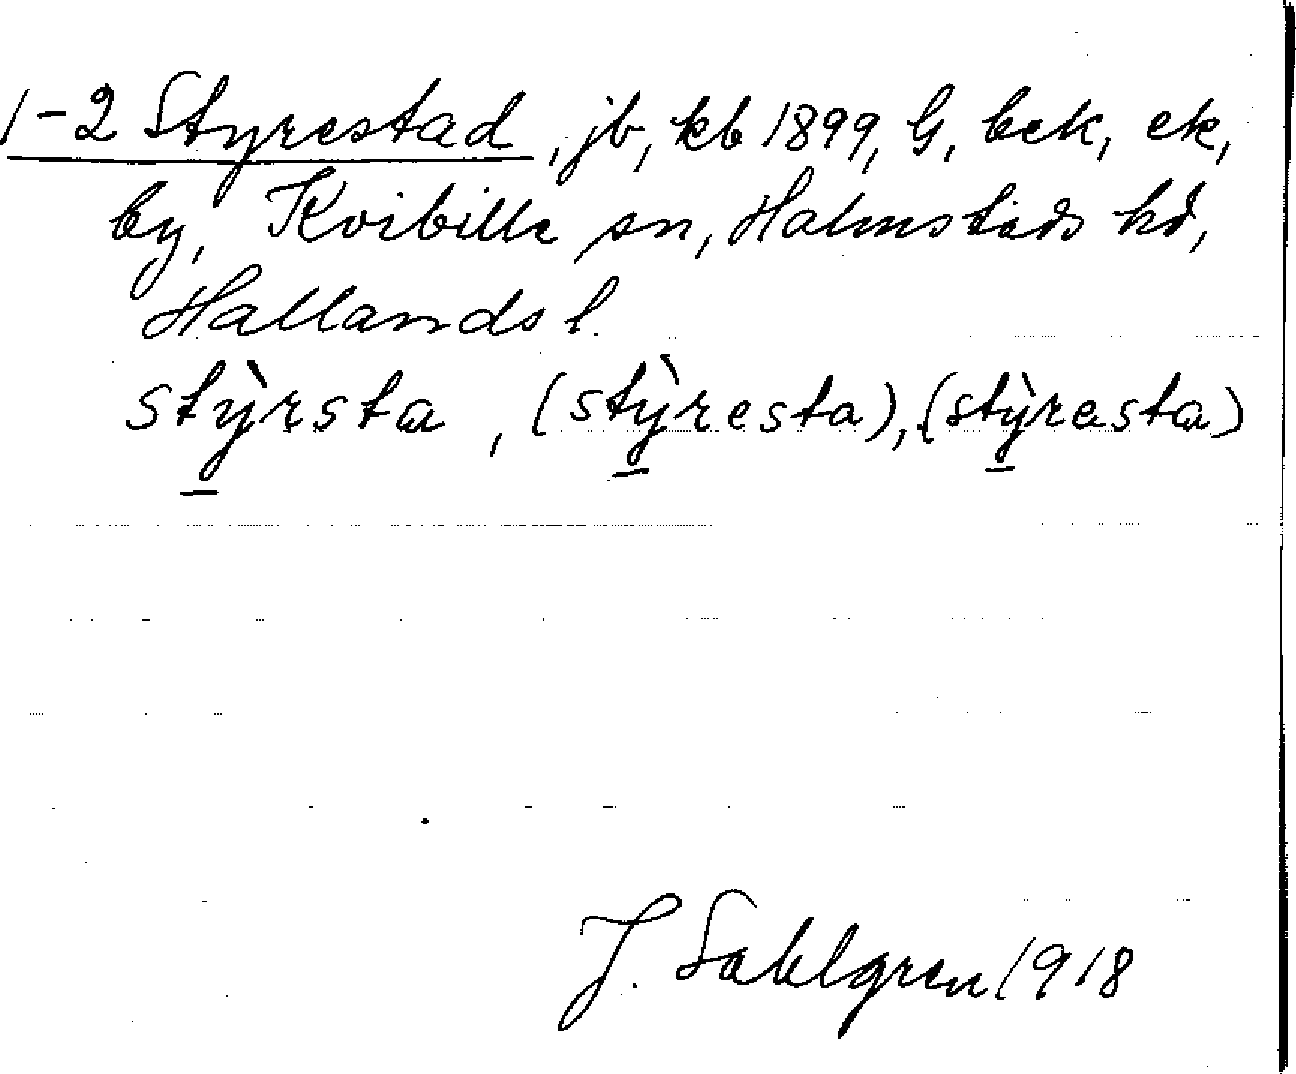 1-2 Styrestad, jb, kb 1899, G, bek, ek,
by, Kvibille sn, Halmstads hd,
Hallands l.
stỳ̠rsta, (stỳ̠resta), (stỳ̠rasta)
J. Sahlgren 1918